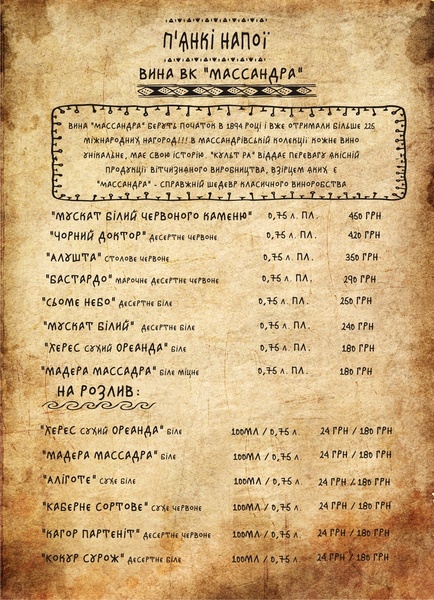 П'ЯНКІ НАПОЇ
ВИНА ВК "МАССАНДРА"
ВИНА "МАССАНДРА" БЕРУТЬ ПОЧАТОК В 1894 РОЦІ І ВЖЕ ОТРИМАЛИ БІЛЬШЕ 225
МІЖНАРОДНИХ НАГОРОД!!! В МАССАНДРІВСЬКІЙ КОЛЕКЦІЇ КОЖНЕ ВИНО
УНІКАЛЬНЕ, МАЄ СВОЮ ІСТОРІЮ. "КУЛЬТ РА" ВІДДАЄ ПЕРЕВАГУ ЯКІСНІЙ
ПРОДУКЦІЇ ВІТЧИЗНЯНОГО ВИРОБНИЦТВА, ВЗІРЦЕМ ЯКИХ Є
"МАССАНДРА" - СПРАВЖНІЙ ШЕДЕВР КЛАСИЧНОГО ВИНОРОБСТВА
"МУСКАТ БІЛИЙ ЧЕРВОНОГО КАМЕНЮ" 0,75 Л. ПЛ. 450 ГРН
"ЧОРНИЙ ДОКТОР" ДЕСЕРТНЕ ЧЕРВОНЕ 0,75 Л. ПЛ. 420 ГРН
"АЛУШТА" СТОЛОВЕ ЧЕРВОНЕ 0,75 Л. ПЛ. 350 ГРН
"БАСТАРДО" МАРОЧНЕ ДЕСЕРТНЕ ЧЕРВОНЕ 0,75 Л. ПЛ. 290 ГРН
"СЬОМЕ НЕБО" ДЕСЕРТНЕ БІЛЕ 0,75 Л. ПЛ. 250 ГРН
"МУСКАТ БІЛИЙ" ДЕСЕРТНЕ БІЛЕ 0,75 Л. ПЛ. 240 ГРН
"ХЕРЕС СУХИЙ ОРЕАНДА" БІЛЕ 0,75 Л. ПЛ. 180 ГРН
"МАДЕРА МАССАДРА" БІЛЕ МІЦНЕ 0,75 Л. ПЛ. 180 ГРН
НА РОЗЛИВ:
"ХЕРЕС СУХИЙ ОРЕАНДА" БІЛЕ 100МЛ / 0,75 Л. 24 ГРН / 180 ГРН
"МАДЕРА МАССАДРА" БІЛЕ 100МЛ / 0,75 Л. 24 ГРН / 180 ГРН
"АЛІГОТЕ" СУХЕ БІЛЕ 100МЛ / 0,75 Л. 24 ГРН / 180 ГРН
"КАБЕРНЕ СОРТОВЕ" СУХЕ ЧЕРВОНЕ 100МЛ / 0,75 Л. 24 ГРН / 180 ГРН
"КАГОР ПАРТЕНІТ" ДЕСЕРТНЕ ЧЕРВОНЕ 100МЛ / 0,75 Л. 24 ГРН / 180 ГРН
"КОКУР СУРОЖ" ДЕСЕРТНЕ БІЛЕ 100МЛ / 0,75 Л. 24 ГРН / 180 ГРН